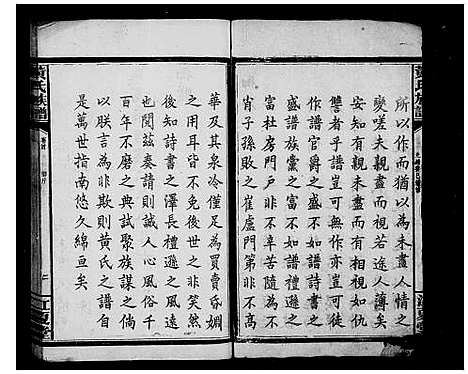 黃氏族譜
所以作而猶以為未盡人情之
變嗟夫親盡而視若途人薄矣
安知有親未盡而有親未盡而
譬者乎譜豈可無作亦豈可徒
作譜官爵之盛不如譜詩書之
盛譜族黨之富不如譜禮遜之
富杜房門戶非不辛苦隨為不
肖子孫敗之崔盧門第非不高
華及其泉冷僅足為買賣昏姻
之用耳皆不免後世之非笑然
後知詩書之澤長禮遜之風遠
也閱茲奏譜則誠人心風俗千
百年不磨之典試聚族謀之倘
以朕言為非欺則黃氏之譜自
是萬世指南悠久綿亘矣
黃氏族譜
江夏堂